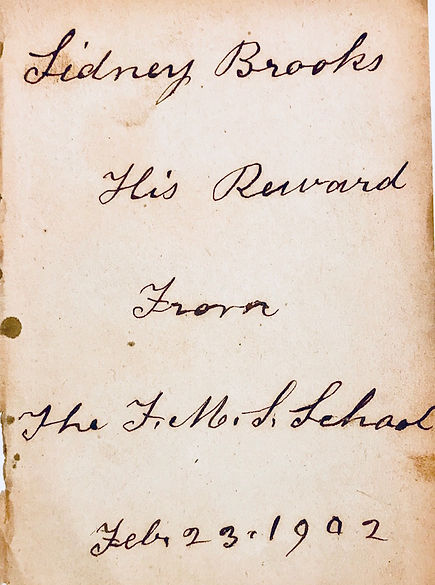 Sidney Brooks
His Reward
From
The F. M. S. School
Feb. 23. 1902